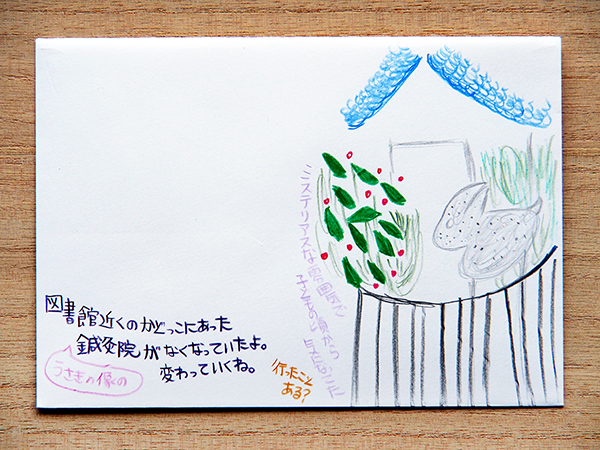 図書館近くのかどっこにあった
鍼灸院がなくなっていたよ。
うさぎの像の
変わっていくね。
行ったこと
ある?
ミステリアスな雰囲気で
頃から